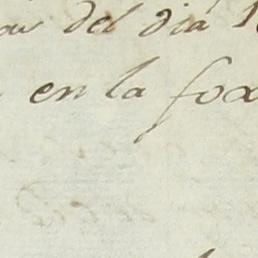 del dia 1
en la fox